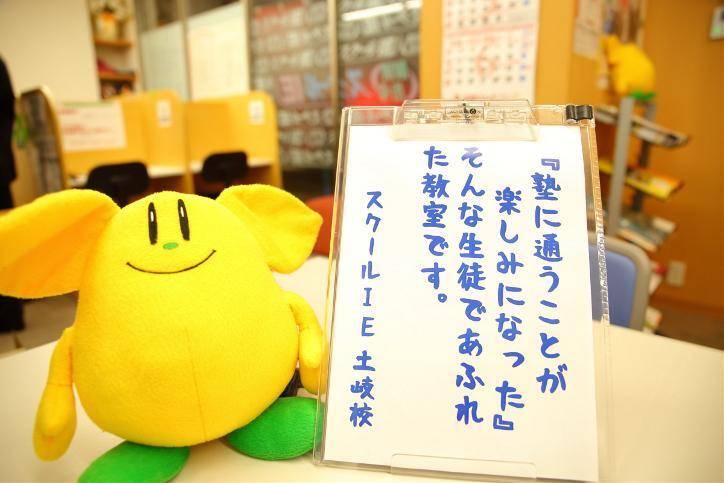 『塾に通うことが
楽しみになった』
そんな生徒であふれ
た教室です。
スクールIE 土岐校